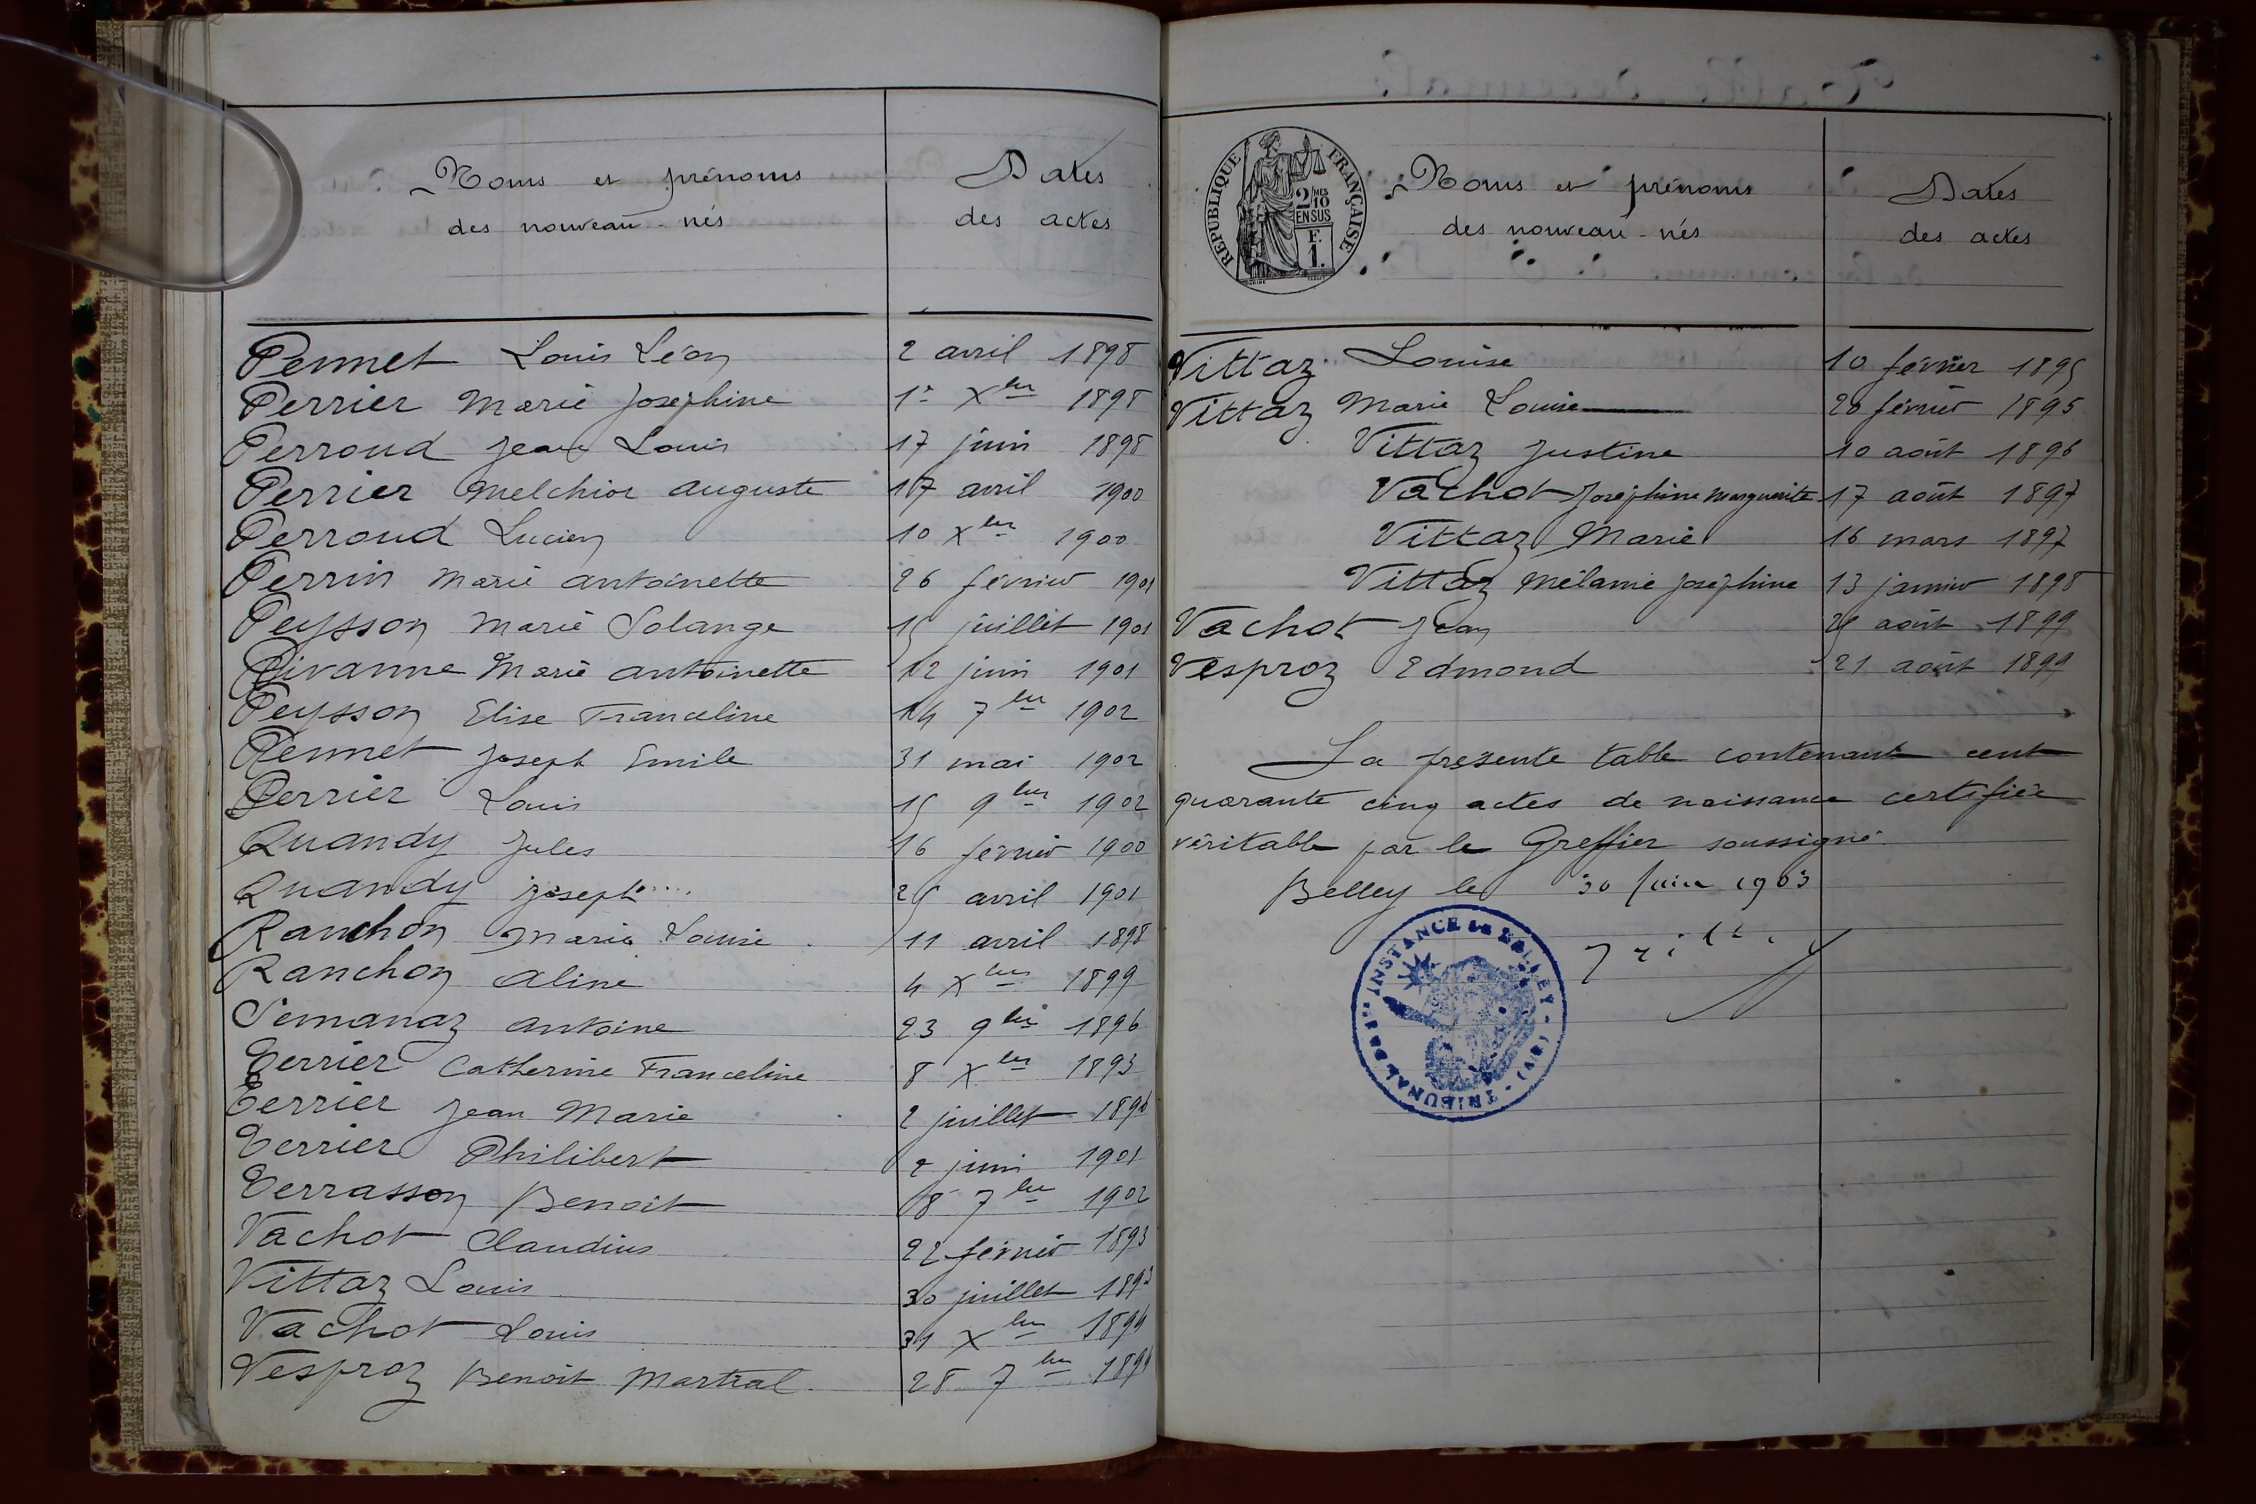 Noms et prénoms
des nouveau-nés
Dates
des actes
Pennet Louis Léon 2 avril 1898
Perrier Marie Joséphine 1er Xbre 1898
Perroud Jean Louis 17 juin 1898
Perrier Melchior Auguste 17 avril 1900
Perroud Lucien 10 Xbre 1900
Perrin Marie Antoinette 26 février 1901
Peysson Marie Solange 15 juillet 1901
Pivanne Marie Antoinette 12 juin 1901
Peysson Elise Franceline 14 7bre 1902
Pennet Joseph Emile 31 mai 1902
Perrier Louis 15 9bre 1902
Quandy Jules 16 février 1900
Quandy Joseph 25 avril 1901
Ranchon Maria Louise 11 avril 1898
Ranchon Aline 4 Xbre 1899
Semanaz Antoine 23 9bre 1896
Terrier Catherine Franceline 8 Xbre 1893
Terrier Jean Marie 2 juillet 1896
Terrier Philibert 2 juin 1901
Terrasson Benoit 8 7bre 1902
Vachot Claudius 22 février 1893
Vittaz Louis 30 juillet 1893
Vachot Louis 31 Xbre 1894
Vesproz Benoit Martial 28 7bre 1894
RÉPUBLIQUE FRANÇAISE
2/10 MES
EN SUS
F.
1.
Noms et prénoms
des nouveau-nés
Dates
des actes
Vittaz Louise 10 février 1895
Vittaz Marie Louise 28 février 1895
Vittaz Justine 10 août 1896
Vachot Joséphine Marguerite 17 août 1897
Vittaz Marie 16 mars 1897
Vittaz Mélanie Joséphine 13 janvier 1898
Vachot Jean 28 août 1899
Vesproz Edmond 21 août 1899
La présente table contenant cent
quarante cinq actes de naissance certifiée
véritable par le Greffier soussigné
Belley le 30 Juin 1903
TRIBUNAL DE 1re INSTANCE DE BELLEY - (AIN) -